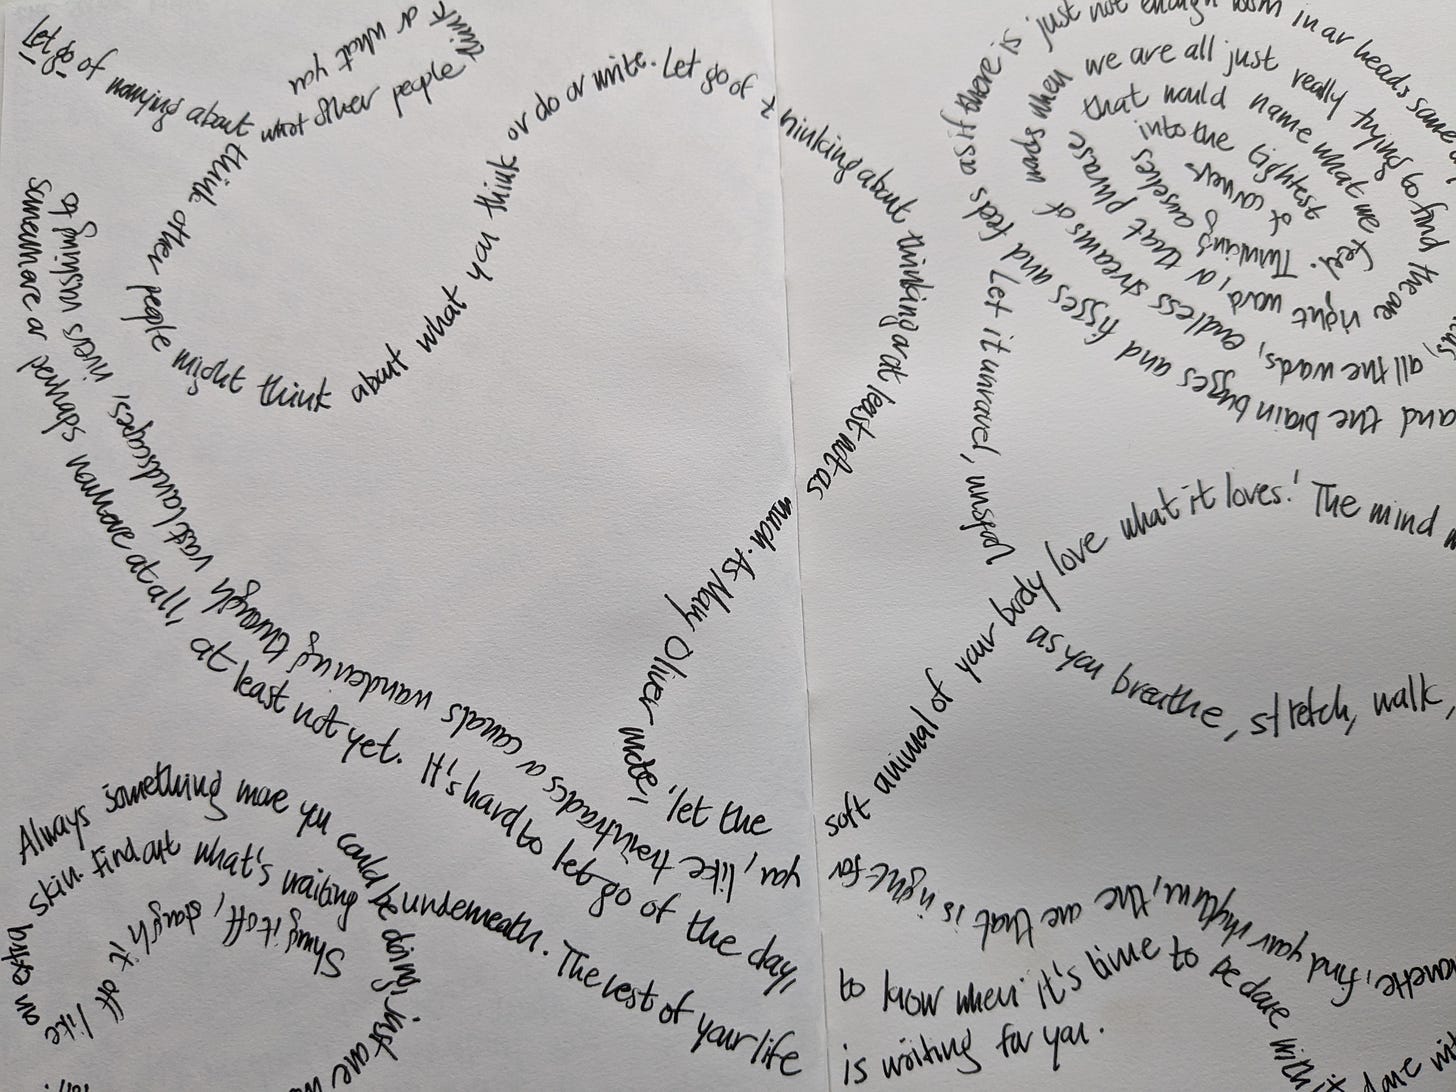 Let go of worrying about what other people think or what you
think other people might think about what you think or do or write. Let go of
thinking about thinking or at least not as much. As Mary Oliver wrote, 'let the
soft animal of your body love what it loves.' The mind
as you breathe, stretch, walk,
Let it unravel, unspool
and the brain buzzes and fizzes and feels as if there is just not enough room in our heads some
all the words, endless streams of words when we are all just really trying to find the one
right word, or that phrase that would name what we feel.
Thinking ourselves into the tightest of corners.
find your rhythm, the one that is right for
you, like traintracks or canals wandering through vast landscapes, rivers rushing to
somewhere or perhaps nowhere at all, at least not yet. It's hard to let go of the day,
to know when it's time to be done with it
Always something more you could be doing, just one
Shrug it off, slough it off like
an extra skin. Find out what's waiting underneath. The rest of your life
is waiting for you.